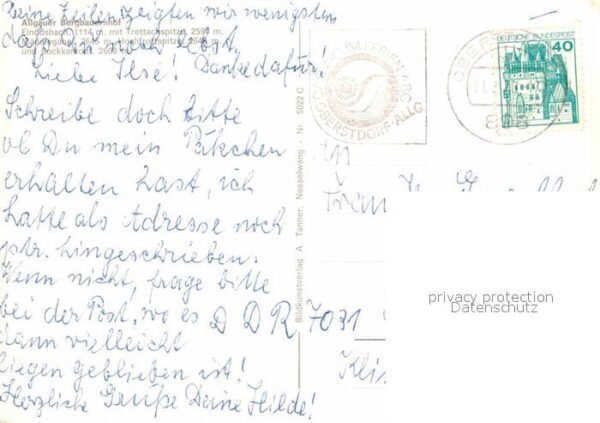 Deine Zeilen zeigten wir wenigsten
daß Du noch lebst,
Allgäuer Bergbauernhof
Einödsbach, 1114 m, mit Trettachspitze, 2594 m,
Mädelegabel, 2645 m, Hochfrottspitze, 2648 m
und Bockkarkopf, 2608 m
Liebe Ilse! Danke dafür!
Schreibe doch bitte
ob Du mein Päkchen
erhalten hast, ich
hatte als Adresse noch
ptr. hingeschrieben.
Wenn nicht, frage bitte
bei der Post, wo es
dann vielleicht
liegen geblieben ist!
Herzliche Grüße Deine Hilde!
Bildkunstverlag A. Tanner, Nesselwang - Nr. 5922 C
OBERSTDORF-ALLG.
DEUTSCHE BUNDESPOST
40
Frau
DDR 7031
privacy protection
Datenschutz